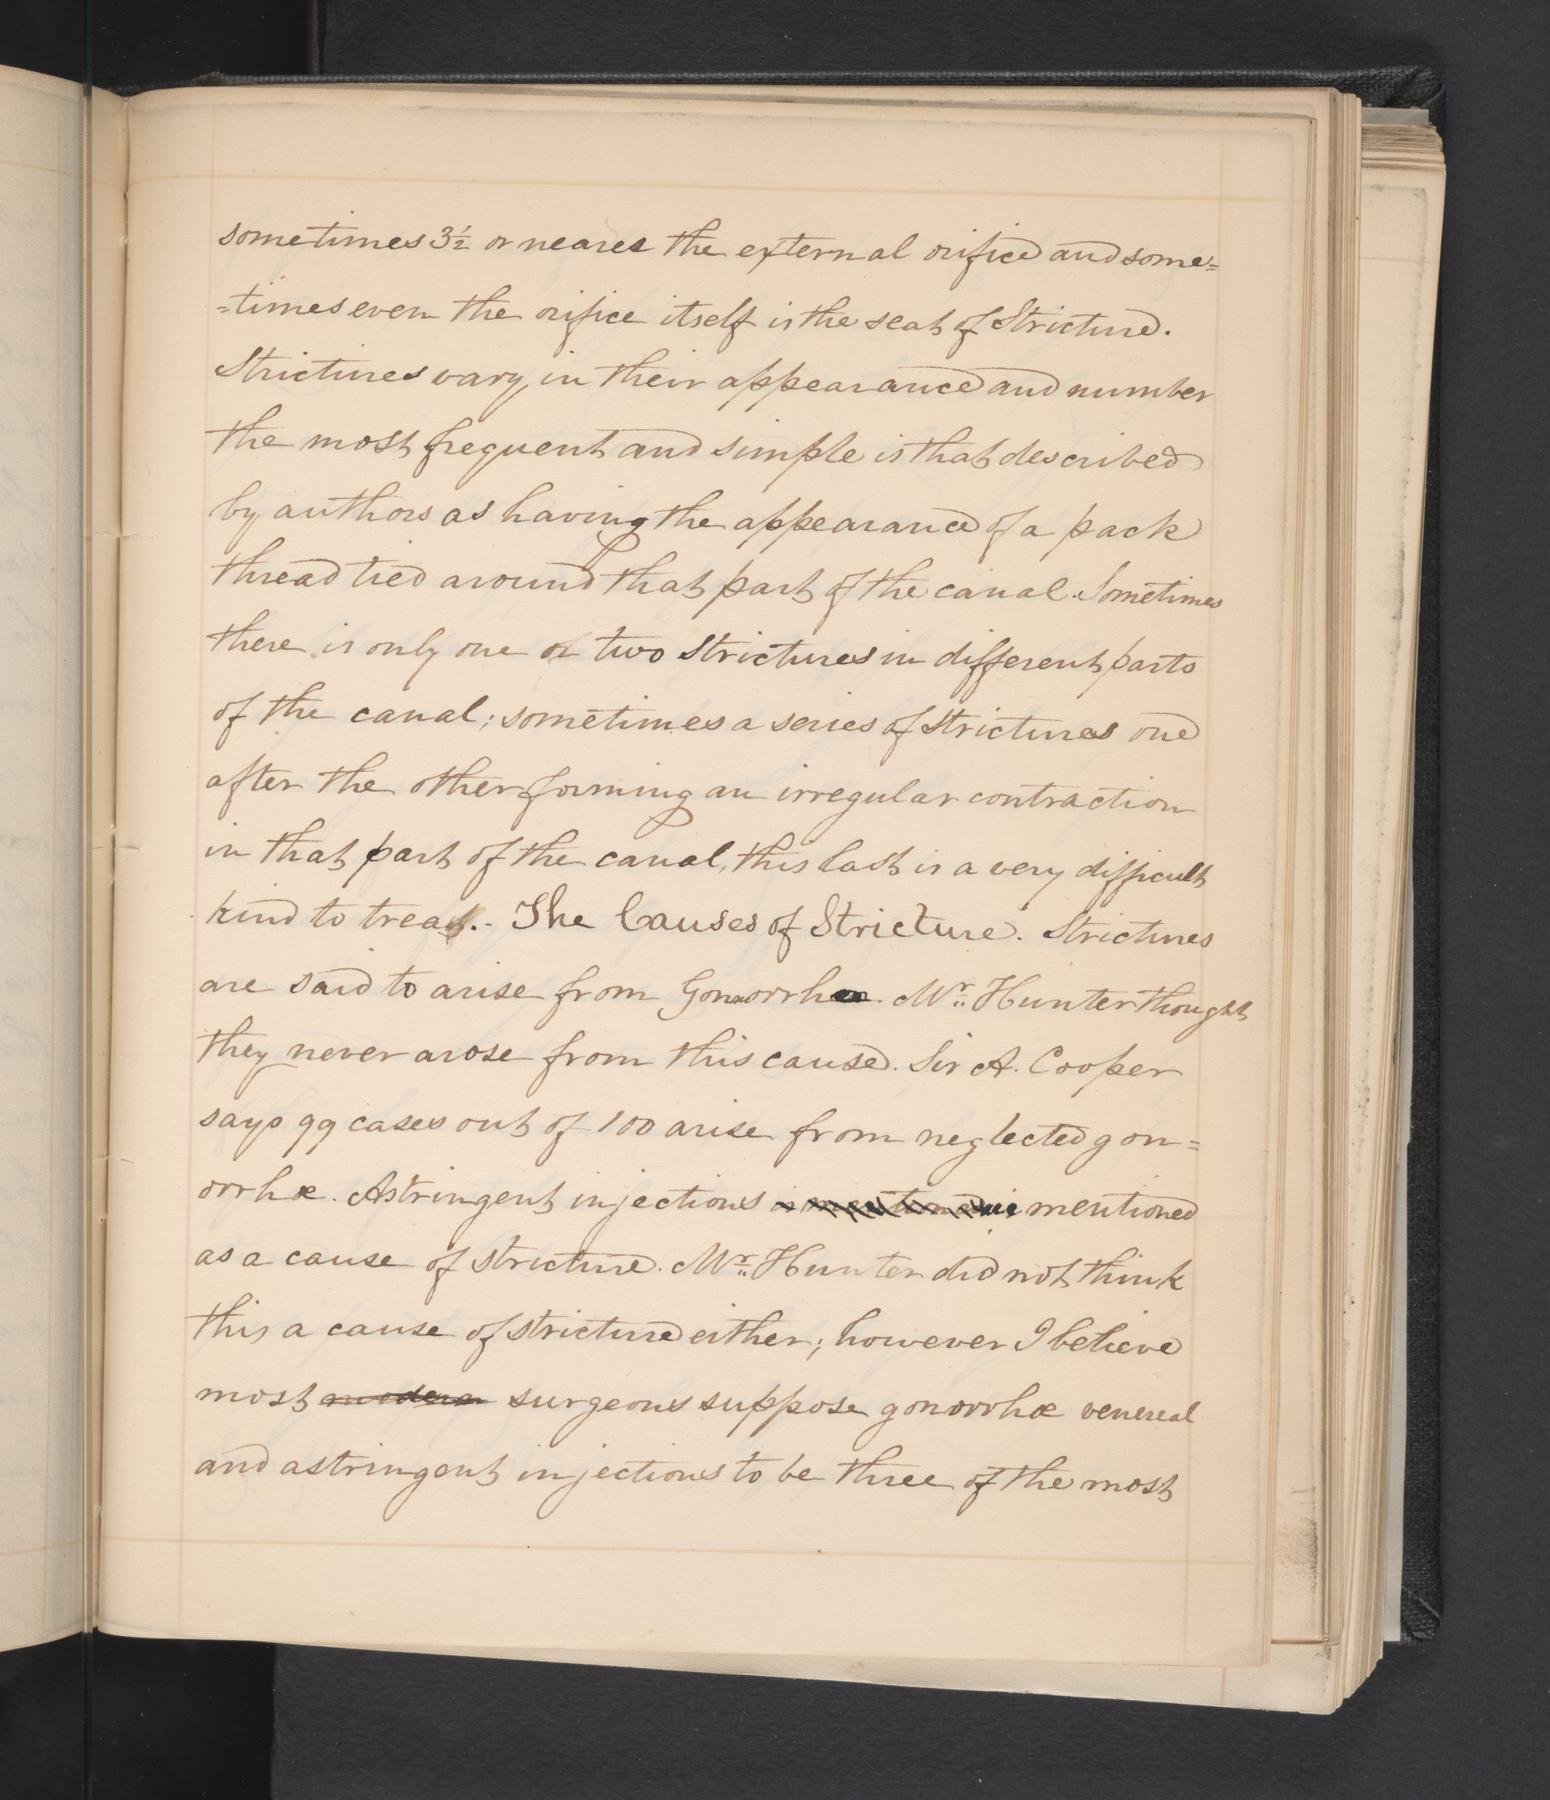 sometimes 3½ or nearer the external orifice and some=
=times even the orifice itself is the seat of Stricture.
Strictures vary in their appearance and number
the most frequent and simple is that described
by authors as having the appearance of a pack
thread tied around that part of the canal. Sometimes
there is only one or two strictures in different parts
of the canal; sometimes a series of strictures one
after the other forming an irregular contraction
in that part of the canal, this last is a very difficult
kind to treat.- The Causes of Stricture. Strictures
are said to arise from Gonorrhœ. Mr. Hunter thought
they never arose from this cause. Sir A. Cooper
says 99 cases out of 100 arise from neglected gon=
orrhœ. Astringent injections mentioned
as a cause of stricture. Mr. Hunter did not think
this a cause of stricture either; however I believe
most modern surgeons suppose gonorrhœ venereal
and astringent injections to be three of the most